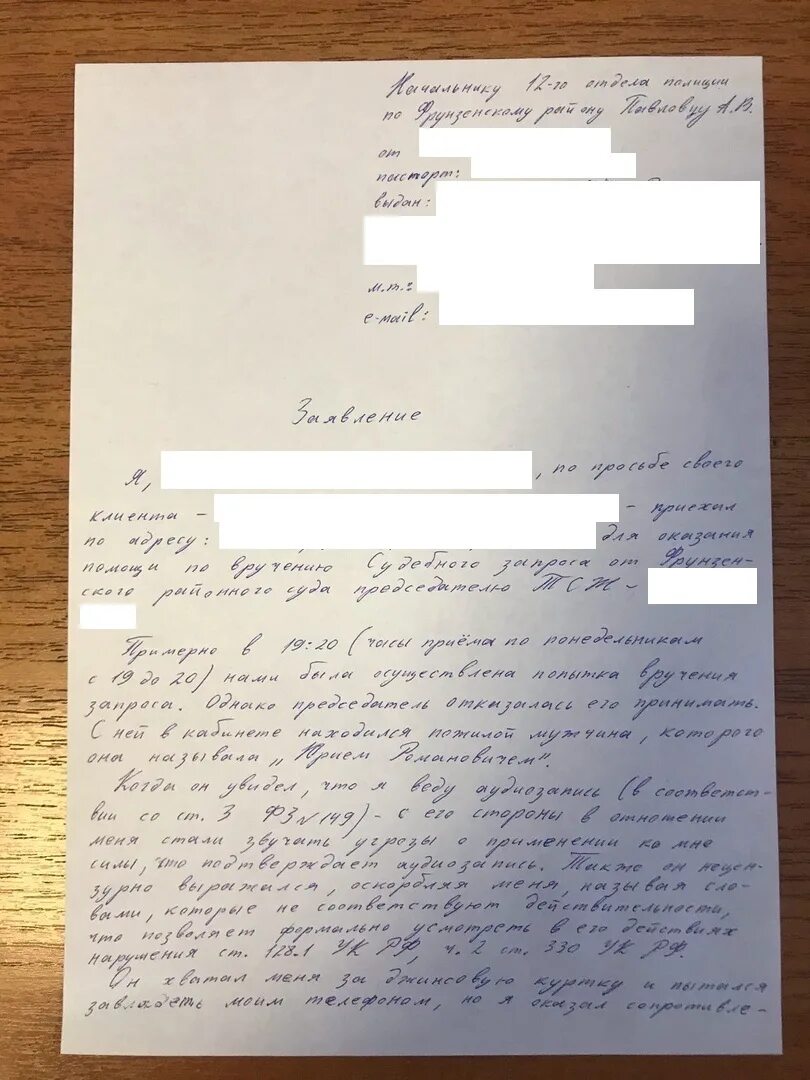 Начальнику 12-го отдела полиции
по Фрунзенскому району Павловцу А.В.
от
паспорт:
выдан:
м.т.:
e-mail:
Заявление
Я, , по просьбе своего
клиента – – приехал
по адресу: для оказания
помощи по вручению Судебного запроса от Фрунзен-
ского районного суда председателю ТСЖ –
Примерно в 19:20 (часы приёма по понедельникам
с 19 до 20) нами была осуществлена попытка вручения
запроса. Однако председатель отказалась его принимать.
С ней в кабинете находился пожилой мужчина, которого
она называла „Юрием Романовичем".
Когда он увидел, что я веду аудиозапись (в соответст-
вии со ст. 3 ФЗ №149) – с его стороны в отношении
меня стали звучать угрозы о применении ко мне
силы, что подтверждает аудиозапись. Также он нецен-
зурно выражался, оскорбляя меня, называя сло-
вами, которые не соответствуют действительности,
что позволяет формально усмотреть в его действиях
нарушения ст. 128.1 УК РФ, ч. 2 ст. 330 УК РФ.
Он хватал меня за джинсовую куртку и пытался
завладеть моим телефоном, но я оказал сопротивле-